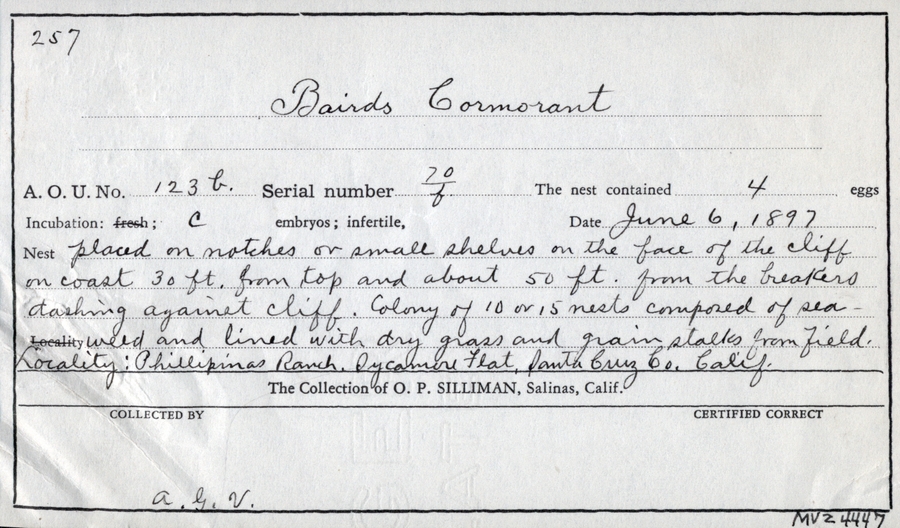 257
Bairds Cormorant
A. O. U. No. 123 b. Serial number 70/6 The nest contained 4 eggs
Incubation: fresh; c embryos; infertile, Date June 6, 1897
Nest placed on notches or small shelves on the face of the cliff
on coast 30 ft. from top and about 50 ft. from the breakers
dashing against cliff. Colony of 10 or 15 nests composed of sea-
Locality weed and lined with dry grass and grain stalks from field.
Locality: Phillipinas Ranch. Sycamore Flat, Santa Cruz Co. Calif.
The Collection of O. P. SILLIMAN, Salinas, Calif.
COLLECTED BY CERTIFIED CORRECT
A. G. V.
MVZ 4447